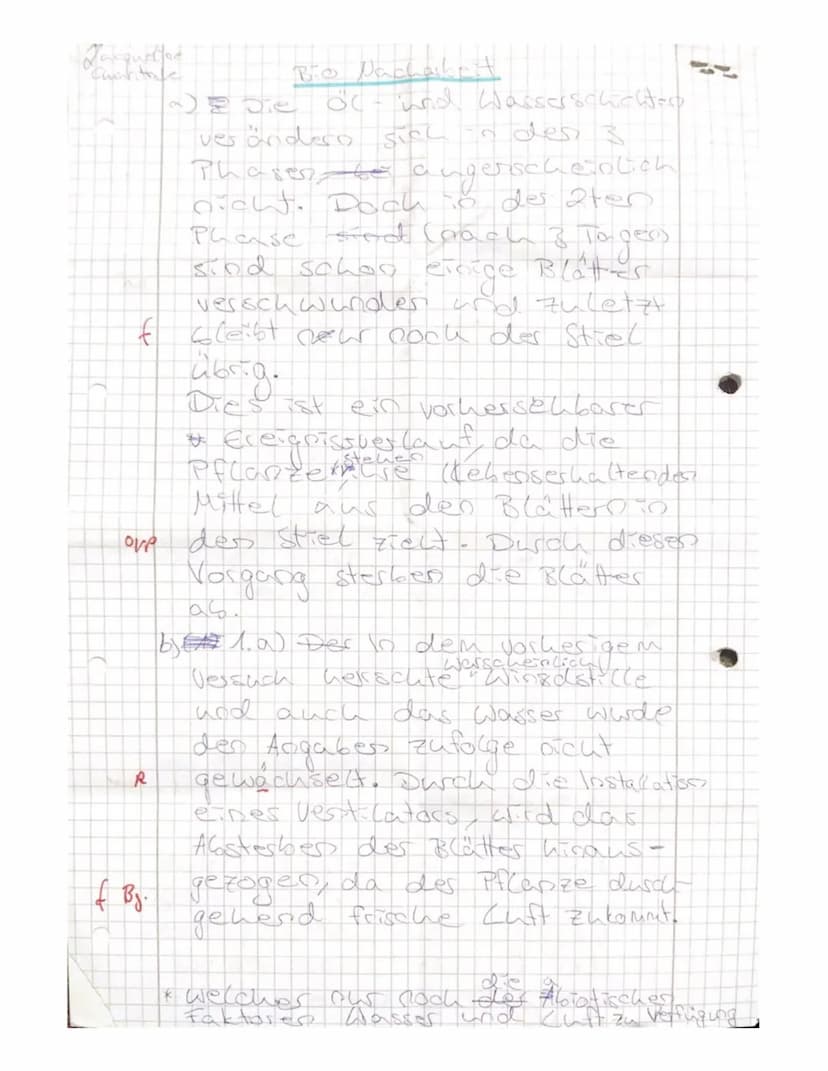 Bio Nacharbeit
a) Die Öl- und Wasserschichten
verändern sich in den 3
Phasen augenscheinlich
nicht. Doch in der 2ten
Phase sind (nach 3 Tagen)
sind schon einige Blätter
verschwunden und zuletzt
f bleibt nur noch der Stiel
übrig.
Dies ist ein vorhersehbarer
* Ereignissverlauf, da die
stehen
Pflanze, die lebenserhaltenden
Mittel aus den Blättern in
ovp den Stiel zieht. Durch diesen
Vorgang sterben die Blätter
ab.
b) 1.a) Der In dem vorherigem
warscheinlich
Versuch herrschte Windstille
und auch das Wasser wurde
den Angaben zufolge nicht
R gewächselt. Durch die Installation
eines Ventilators, wird das
Absterben der Blätter hinaus-
gezogen, da der Pflanze durch-
f Bj. gehend frische Luft zukommt.
die
* welcher nur noch der Abiotischen
Faktoren Wasser und Luft zu Verfügung